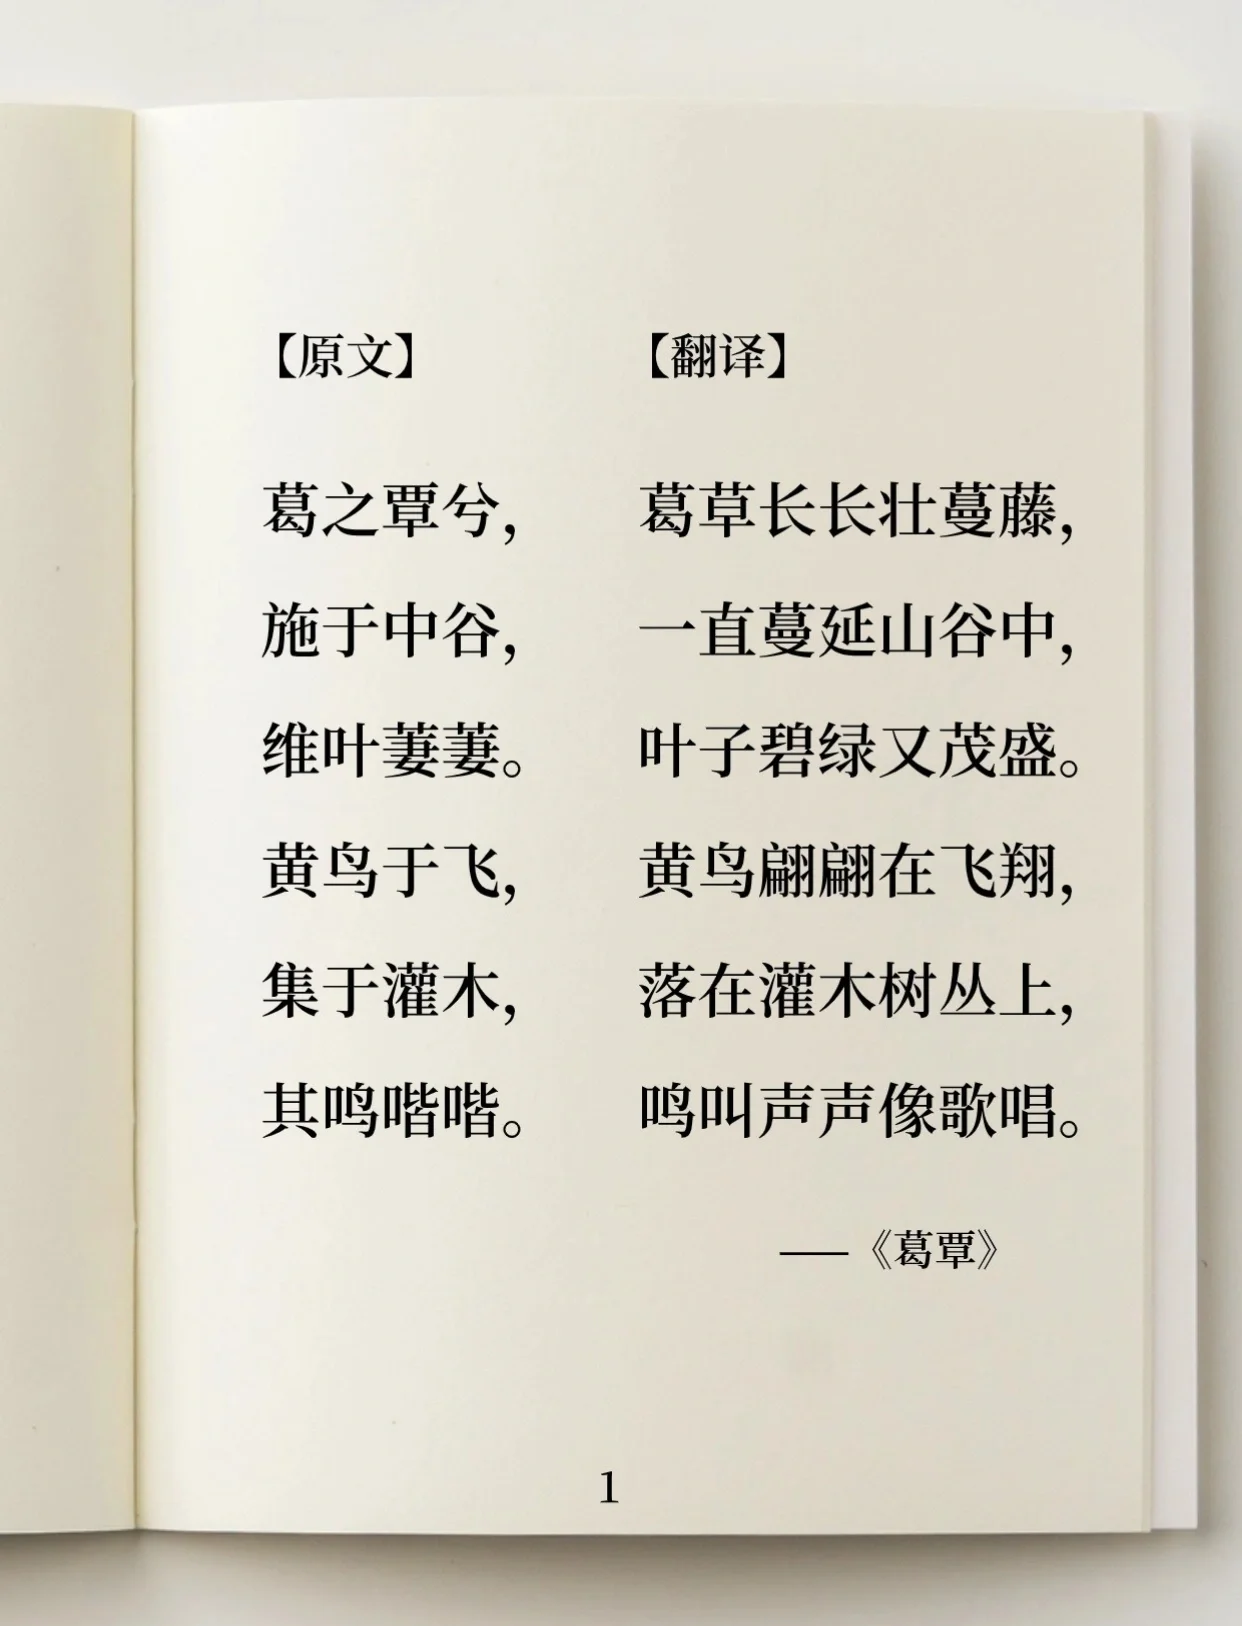 【原文】
【翻译】
葛之覃兮，
葛草长长壮蔓藤，
施于中谷，
一直蔓延山谷中，
维叶萋萋。
叶子碧绿又茂盛。
黄鸟于飞，
黄鸟翩翩在飞翔，
集于灌木，
落在灌木树丛上，
其鸣喈喈。
鸣叫声声像歌唱。
——《葛覃》
1